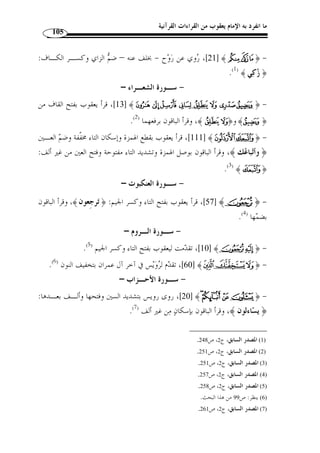 ما انفرد به الإمام يعقوب من القراءات القرآنية
105
- ﴿ مَا زَكَىٰ مِنكُم ﴾ [21]، رُوِي عن رَوْح - بخلف عنه - ضمّ الزاي وكسر الكاف:
﴿ زُكِّي ﴾ (1).
- سورة الشعراء -
- ﴿ وَيَضِيقُ صَدْرِي وَلَا يَنطَلِقُ لِسَانِي فَأَرْسِلْ إِلَىٰ هَارُونَ ﴾ [13]، قرأ يعقوب بفتح القاف من
﴿ وَيَضِيقَ ﴾ و﴿ وَلَا يَنطَلِقَ ﴾، وقرأ الباقون برفعهما (2).
- ﴿ وَاتَّبَعَكَ الْأَرْذَلُونَ ﴾ [111]، قرأ يعقوب بقطع الهمزة وإسكان التاء مخفّفة وضمّ العين
﴿ وَأَتْبَاعُكَ ﴾، وقرأ الباقون بوصل الهمزة وتشديد التاء مفتوحة وفتح العين من غير ألف:
﴿ وَاتَّبَعَكَ ﴾ (3).
- سورة العنكبوت -
- ﴿ تُرْجَعُونَ ﴾ [57]، قرأ يعقوب بفتح التاء وكسر الجيم: ﴿ تَرجِعون ﴾، وقرأ الباقون
بضمّها (4).
- سورة الروم -
- ﴿ إِلَيْهِ تُرْجَعُونَ ﴾ [10]، تقدّمت ليعقوب بفتح التاء وكسر الجيم (5).
- ﴿ وَلَا يَسْتَخِفَّنَّكَ الَّذِينَ ﴾ [60]، تقدّم لرُوَيْس في آخر آل عمران بتخفيف النون (6).
- سورة الأحزاب -
- ﴿ يَسْأَلُونَ عَنْ أَنبَائِكُمْ ﴾ [20]، روى رويس بتشديد السين وفتحها وألف بعدها:
﴿ يسّاءلون ﴾، وقرأ الباقون بإسكان مِن غير ألف (7).
(1) المصدر السابق، ج2، ص248.
(2) المصدر السابق، ج2، ص251.
(3) المصدر السابق، ج2، ص251.
(4) المصدر السابق، ج2، ص257.
(5) المصدر السابق، ج2، ص258.
(6) ينظر: ص99 من هذا البحث.
(7) المصدر السابق، ج2، ص261.